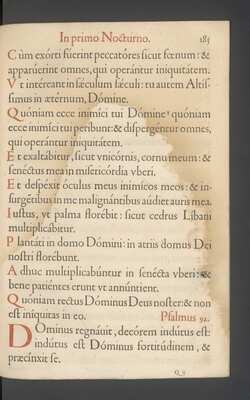 In primo Nocturno. 185
Cùm exórti fúerint peccatóres sicut fœnum: &
apparúerint omnes, qui operántur iniquitátem.
Vt intéreant in sæculum sæculi: tu autem Altís-
simus in ætérnum, Dómine.
Quóniam ecce inimíci tui Dómine, quóniam
ecce inimíci tui períbunt: & dispergéntur omnes,
qui operántur iniquitátem.
Et exaltábitur, sicut vnicórnis, cornu meum: &
senéctus mea in misericórdia vberi.
Et despéxit óculus meus inimícos meos: & in-
surgéntibus in me malignántibus áudiet auris mea.
Iustus, vt palma florébit: sicut cedrus Líbani
multiplicábitur.
Plantáti in domo Dómini: in atriis domus Dei
nostri florébunt.
Adhuc multiplicabúntur in senécta vberi: &
bene patiéntes erunt vt annúntient.
Quóniam rectus Dóminus Deus noster: & non
est iníquitas in eo. Psalmus 92.
DOminus regnáuit, decórem indútus est:
indútus est Dóminus fortitúdinem, &
præcínxit se.